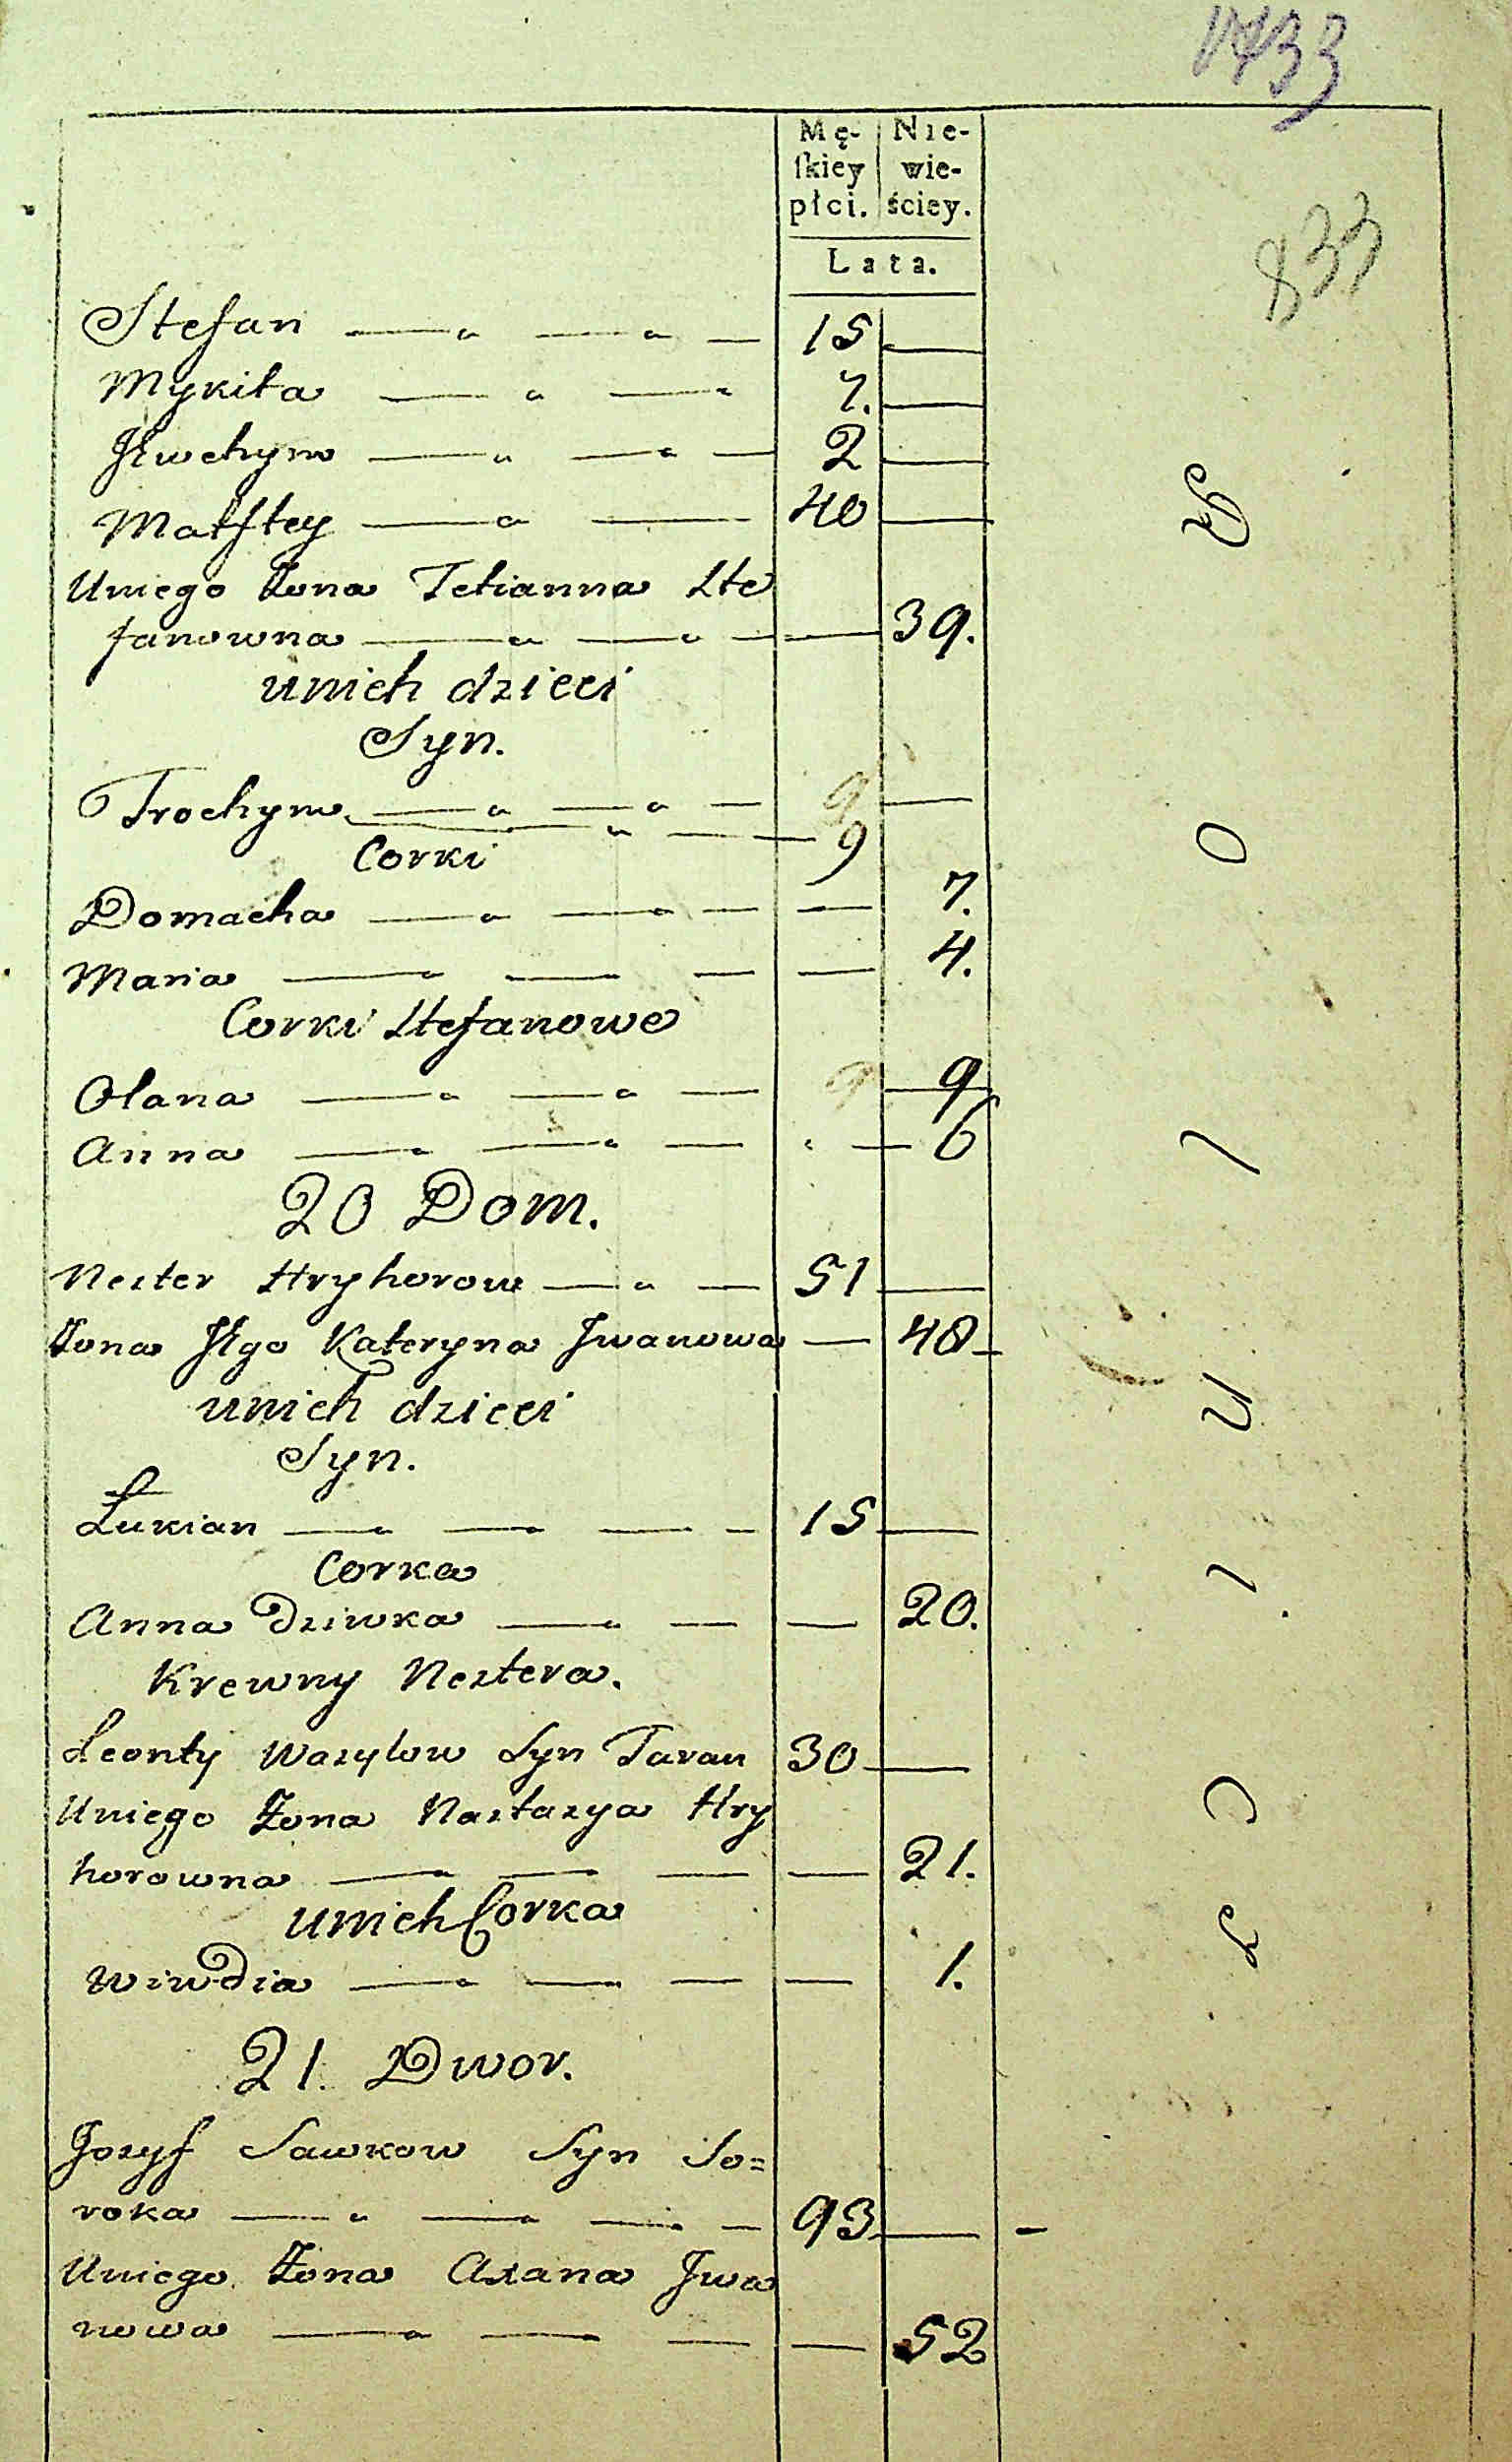 833
Mę- Nie-
ſkiey wie-
płci. ściey.
Lata.
Stefan 15
Mykita 7.
Jewchym 2
Matftey 40
Uniego Żona Tetianna Ste
fanowna 39.
unich dzieci
Syn.
Trochym 9
9
Corki
Domacha 7.
Maria 4.
Corki Stefanowe
Olana 9 9
Anna 6
20 Dom.
Nester Hryhorow 51
Żona Jego Kateryna Jwanowa 40
unich dzieci
Syn.
Łukian 15
Corka
Anna Dziwka 20.
Krewny Nestera.
Leonty Wasylow Syn Taran 30
Uniego Żona Nastasya Hry
horowna 21.
unich Corka
Wiwdia 1.
21. Dwor.
Josyf Sawkow Syn So=
roka 93
Uniego Żona Axana Jwa
nowa 52